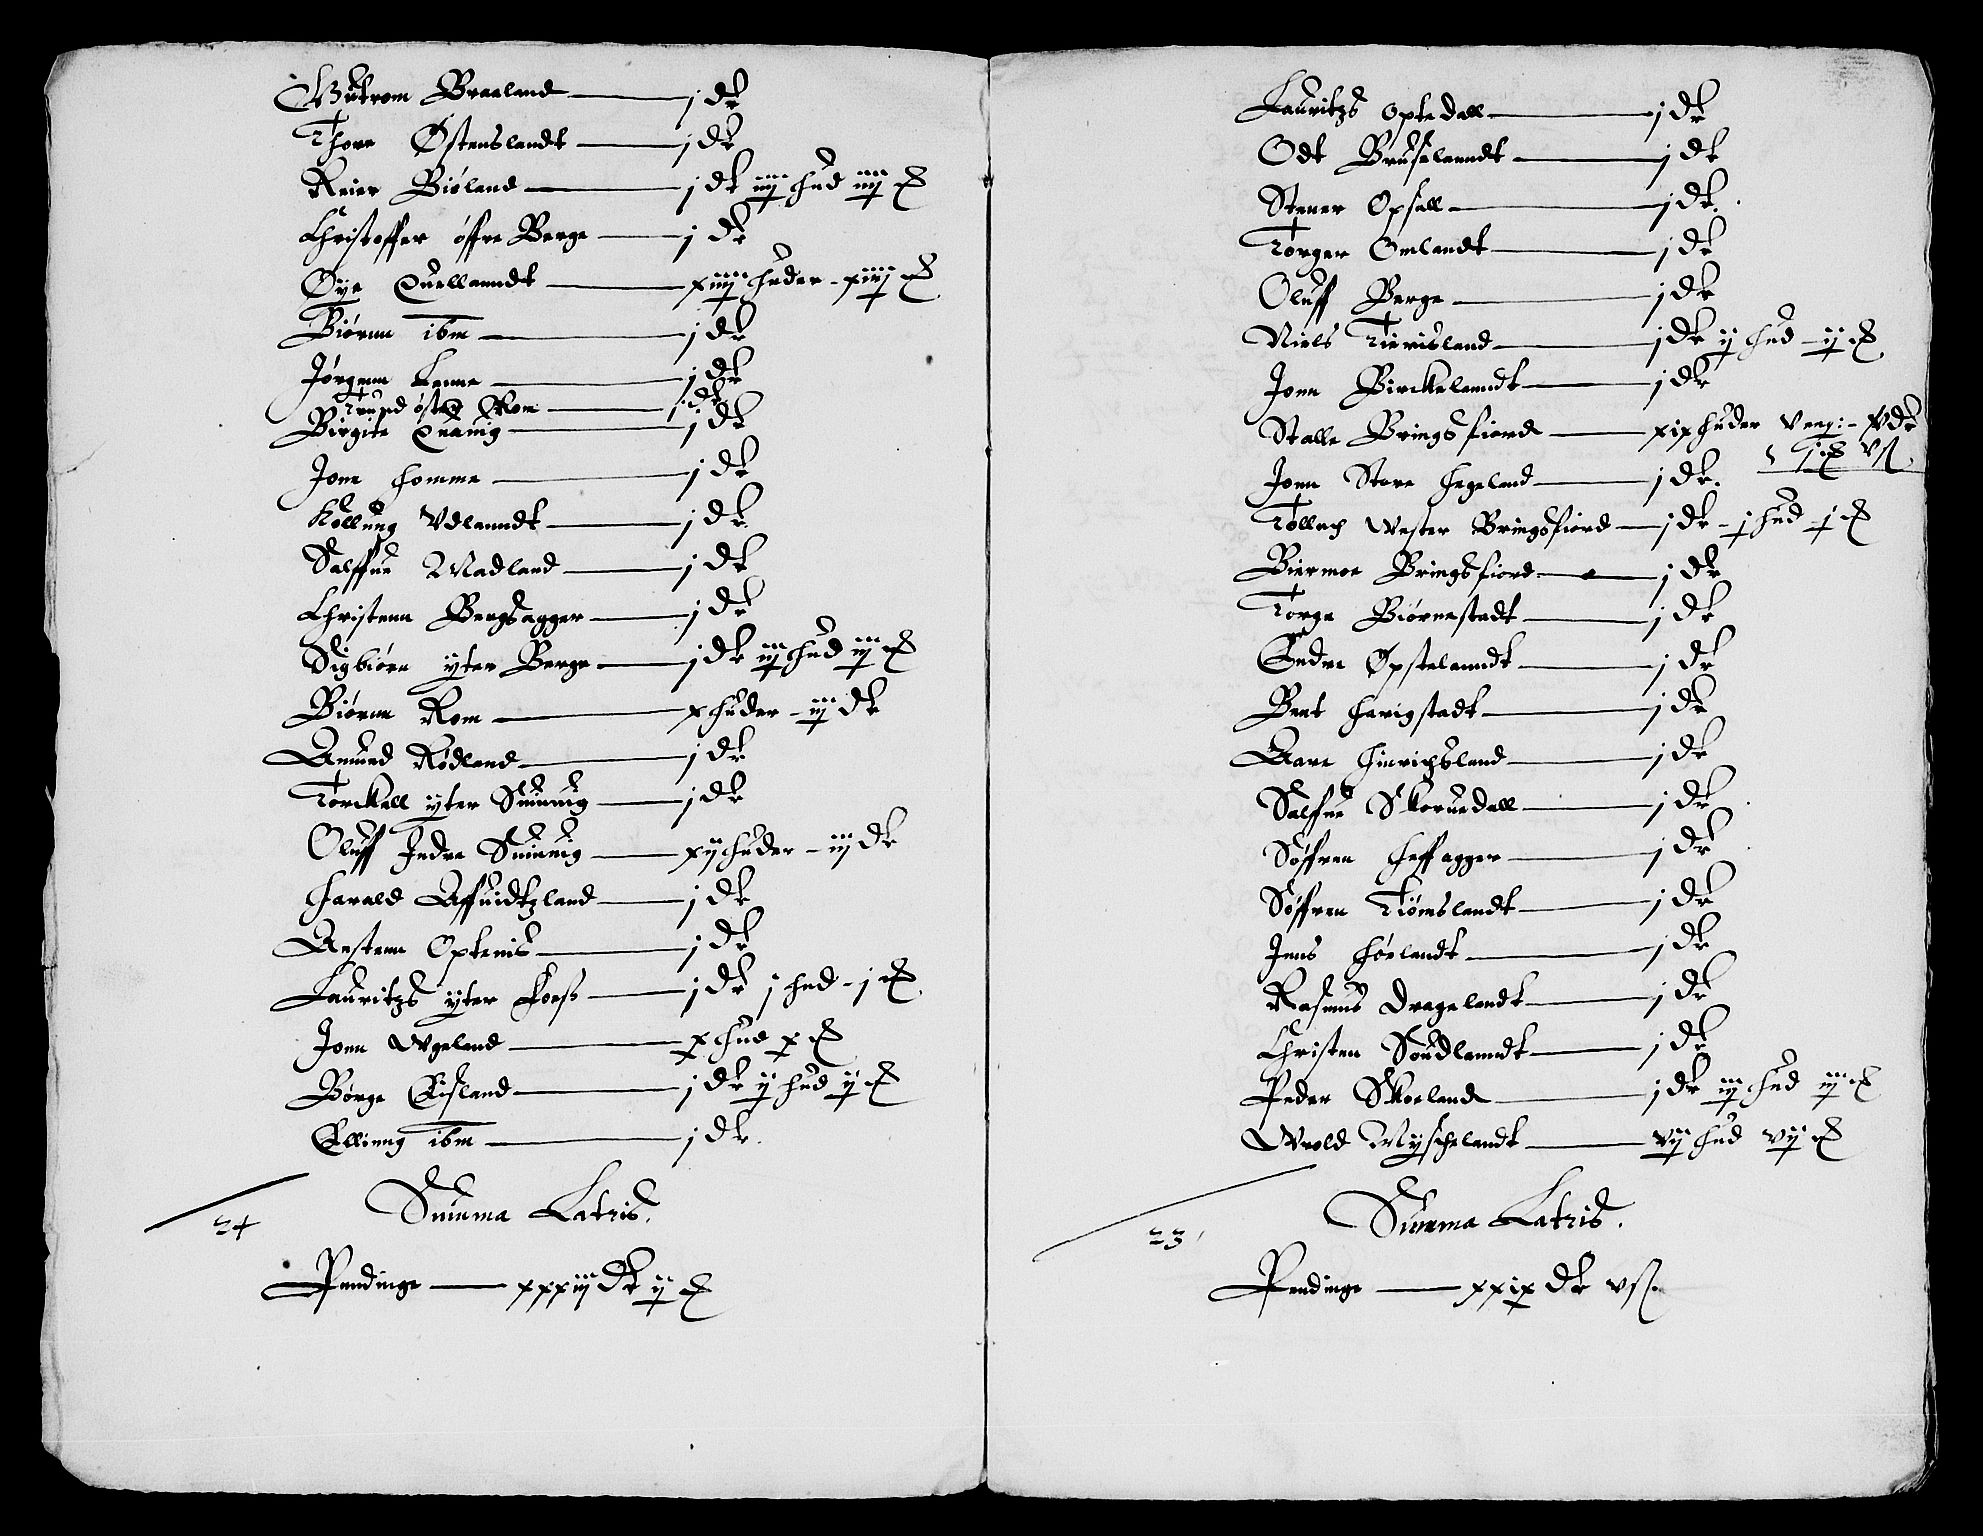 Guttrom Braaland — j dr
Thore Østenslandt — j dr
Reier Biøland — j dr iiij hud iiij
Christoffer øffre Berge — j dr
Øye Quellanndt — xiiij huder - xiiij
Biørnn ibm — j dr
Jørgenn Lenne — j dr
Trund østen Rom — j dr
Birgite Quauig — j dr
Jonn Homme — j dr
Kollung Vdlanndt — j dr
Salffue Madland — j dr
Christenn Bergsagger — j dr
Sigbiørn ytter Berge — j dr iij hud iij
Biørnn Rom — x huder - iij dr
Amund Rødland — j dr
Torckell ytter Suinuig — j dr
Oluff Indre Suinuig — xij huder - iij dr
Harald Affuidtzland — j dr
Aestenn Optenis — j dr
Lauritzs ytter Foess — j dr j hud - j
Jonn Wgeland — x hud x
Børge Eisland — j dr ij hud ij
Ellinng ibm — j dr
Summa Latris.
24
Pendinge — xxxiij dr ij
Lauritzs Optedall — j dr
Odt Bruselanndt — j dr
Stener Opsall — j dr
Torger Omlandt — j dr
Oluff Berge — j dr
Niels Tierisland — j dr ij hud - ij
Jonn Birckelanndt — j dr
Stalle Bringsfiord — xix huder V eng: - V dr
j vs
Jonn Store Hegeland — j dr
Tollach Wester Bringsfiord — j dr - j hud j
Biermoe Bringsfiord — j dr
Torge Biørnestadt — j dr
Endre Øpstelanndt — j dr
Bent Harigstadt — j dr
Aare Hinrichsland — j dr
Salffue Skoruedall — j dr
Søffren Heffagger — j dr
Søffren Tiømslandt — j dr
Jens Høelandt — j dr
Rasmus Dragelandt — j dr
Christen Soudlanndt — j dr
Peder Skoeland — j dr iij hud iij
Wrold Myschelandt — vij hud vij
Summa Latris.
23
Pendinge — xxix dr vs.